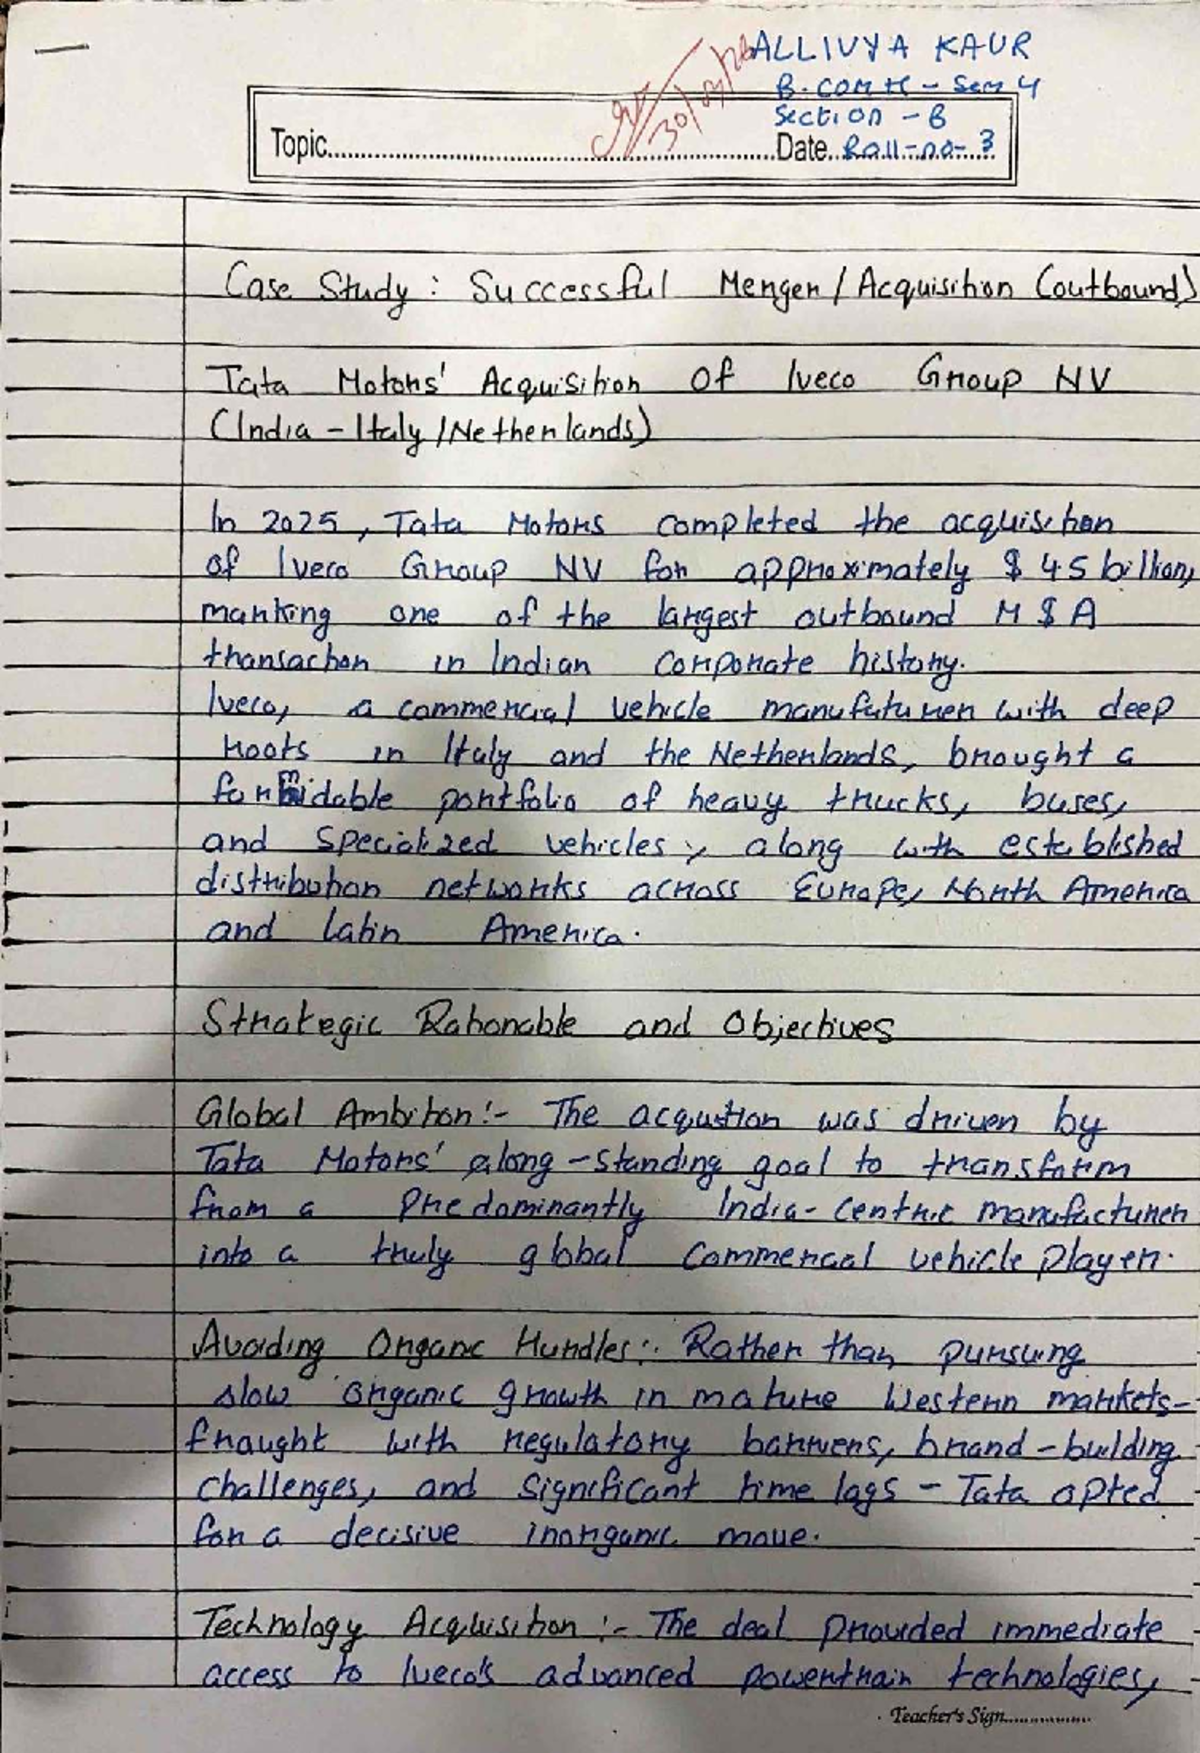 ALLIVYA KAUR
B.COM H - Sem 4
Section - B
Topic
Date Roll-no-3
30/03/26
Case Study: Successful Merger/Acquisition (outbound)
Tata Motors' Acquisition of Iveco Group NV
(India-Italy/Netherlands)
In 2025, Tata Motors completed the acquisition
of Iveco Group NV for approximately $ 45 billion,
marking one of the largest outbound M $ A
transaction in Indian corporate history.
Iveco, a commercial vehicle manufaturer with deep
roots in Italy and the Netherlands, brought a
formidable portfolio of heavy trucks, buses,
and specialized vehicles, along with established
distribution networks across Europe, North America
and Latin America.
Strategic Rationable and Objectives
Global Ambition:- The acqustion was driven by
Tata Motors' along-standing goal to transform
from a predominantly India-centric manufacturer
into a truly global commercial vehicle player.
Avoiding Organic Hurdles:- Rather than pursuing
slow organic growth in mature Western markets-
fraught with regulatory barriers, brand-building
challenges, and significant time lags - Tata opted
for a decisive inorganic move.
Technology Acquisition:- The deal provided immediate
access to Iveco's advanced powertrain technologies,
Teacher's Sign